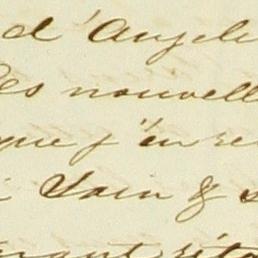 d'Angele
des nouvell
que j'en re
Loin & s